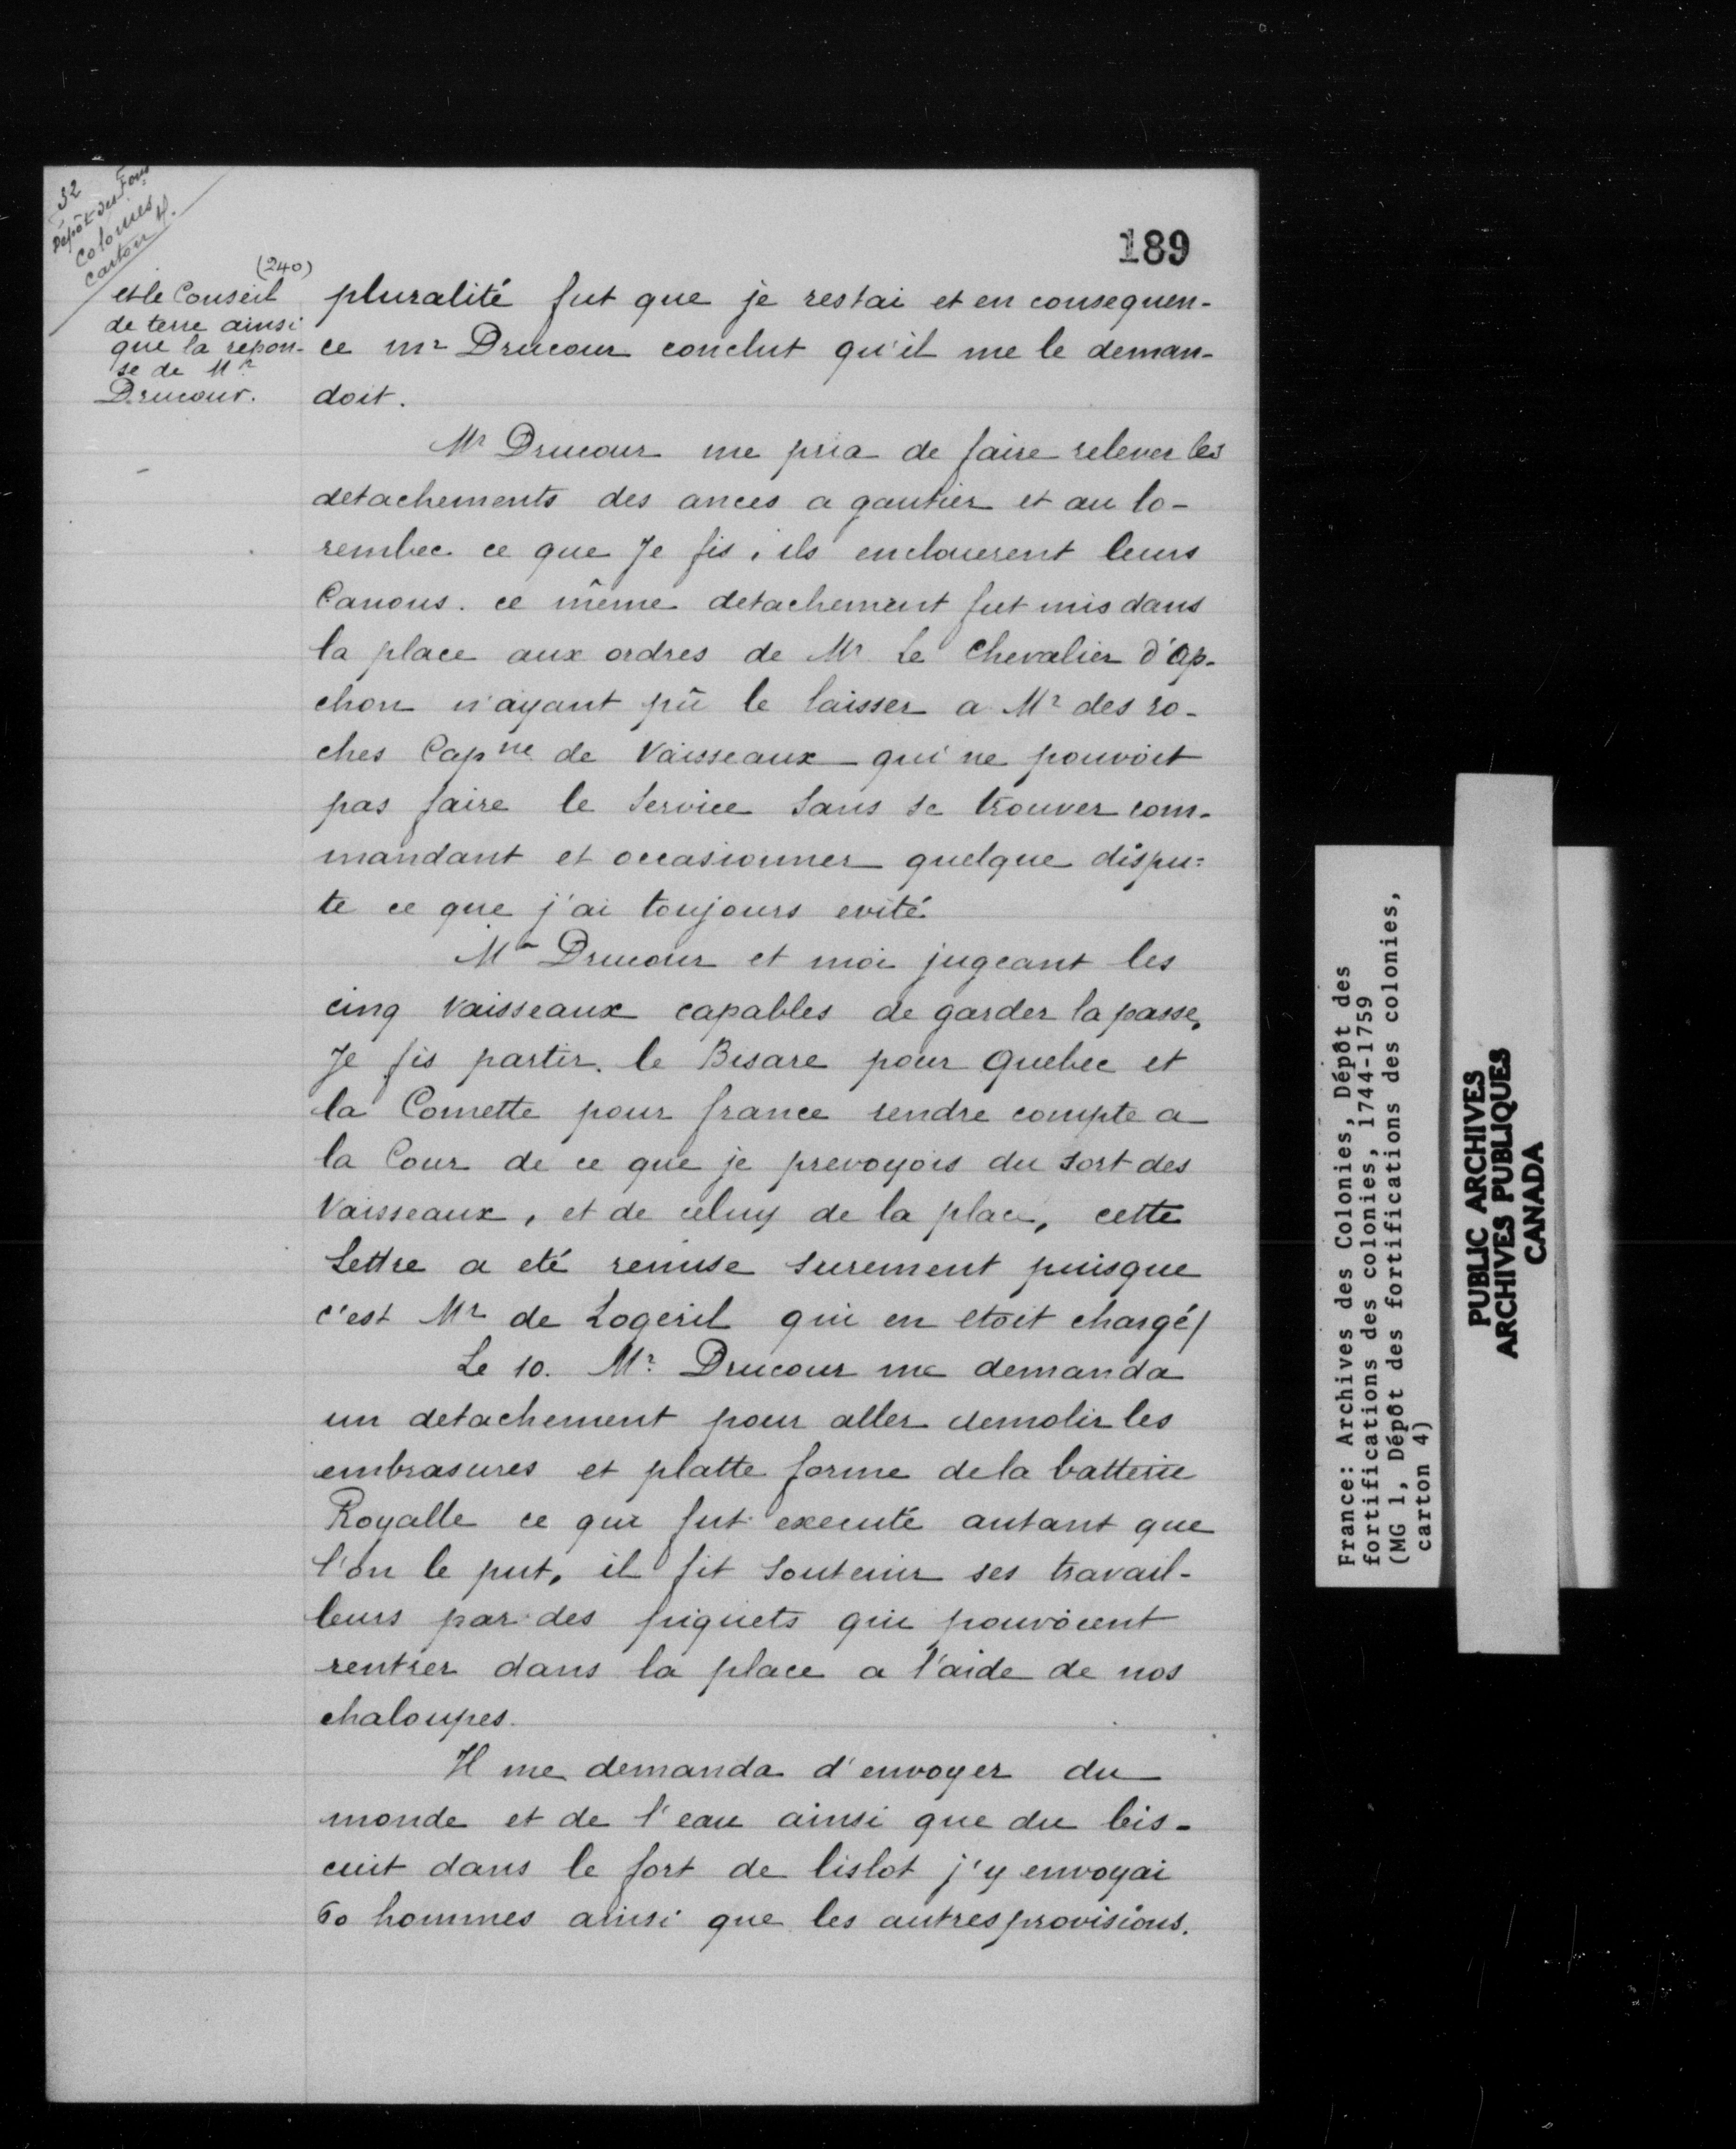 32
Dépôt des Fon
Colonies
Carton 4.
189
(240)
et le Conseil
de terre ainsi
que la repon-
se de Mr
Drucour.
pluralité fut que je restai et en consequen-
ce mr Drucour conclut qu'il me le deman-
doit.
Mr Drucour me pria de faire relever les
detachements des ances a gautier et au lo-
rembec ce que Je fis, ils enclouerent leurs
Canons. ce même detachement fut mis dans
la place aux ordres de Mr Le Chevalier d'ap-
chon n'ayant pû le laisser a Mr des ro-
ches Capne de Vaisseaux qui ne pouvoit
pas faire le Service Sans se trouver com-
mandant et occasionner quelque dispu=
te ce que j'ai toujours evité
Mr Drucour et moi jugeant les
cinq Vaisseaux capables de garder la passe,
Je fis partir. le Bisare pour Quebec et
la Comette pour france rendre compte a
la Cour de ce que je prevoyois du Sort des
Vaisseaux, et de celuy de la place, cette
Lettre a eté remise Surement puisque
c'est Mr de Logeril qui en etoit chargé/
Le 10. Mr Drucour me demanda
un detachement pour aller demolir les
embrasures et platte forme de la batterie
Royalle ce qui fut executé autant que
l'on le put, il fit Soutenir ses travail-
leurs par des piquets qui pouvoient
rentrer dans la place a l'aide de nos
chaloupes.
Il me demanda d'envoyer du
monde et de l'eau ainsi que du bis-
cuit dans le fort de lislot j'y envoyai
60 hommes ainsi que les autres provisions.
France: Archives des Colonies, Dépôt des
fortifications des colonies, 1744-1759
(MG 1, Dépôt des fortifications des colonies,
carton 4)
PUBLIC ARCHIVES
ARCHIVES PUBLIQUES
CANADA